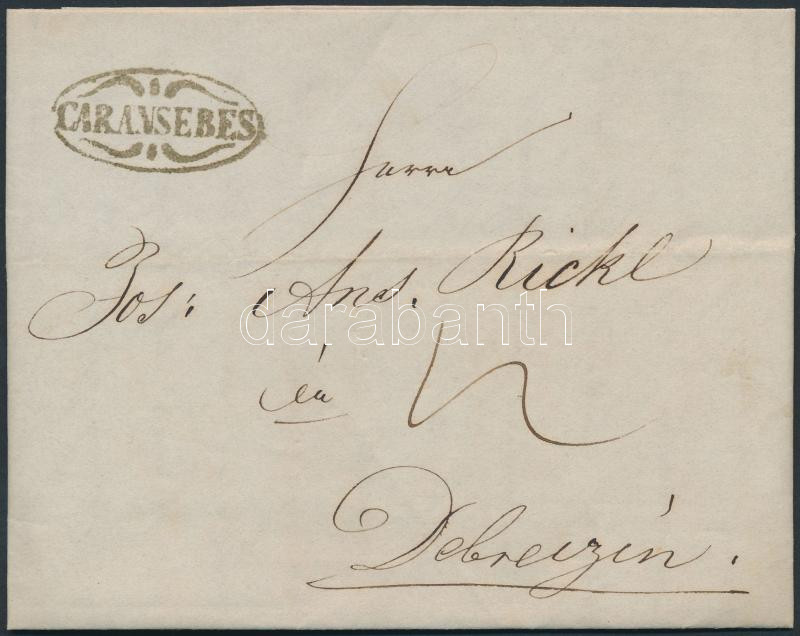 CARANSEBES
Herrn
Jos: And. Rickl
darabanth
in
Debreczin.